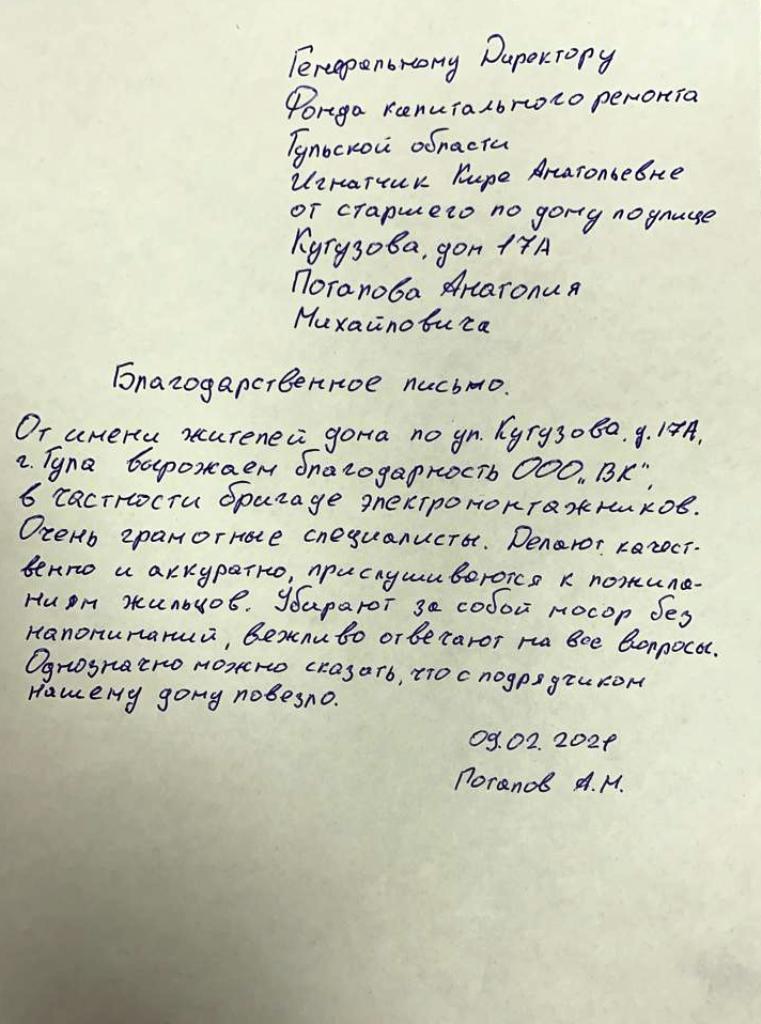 Генеральному Директору
Фонда капитального ремонта
Тульской области
Игнатчик Кире Анатольевне
от старшего по дому по улице
Кутузова, дом 17А
Потапова Анатолия
Михайловича
Благодарственное письмо.
От имени жителей дома по ул. Кутузова, д. 17А,
г. Тула вырожаем благодарность ООО „ВК“,
в частности бригаде электромонтажников.
Очень грамотные специалисты. Делают качест-
венно и аккуратно, прислушиваются к пожила-
ниям жильцов. Убирают за собой мосор без
напоминаний, вежливо отвечают на все вопросы.
Однозначно можно сказать, что с подрядчиком
нашему дому повезло.
09.02.2021
Потапов А.М.